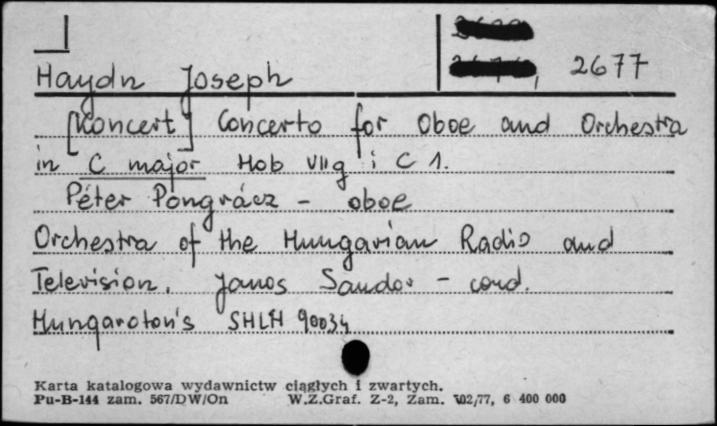 2677
Haydn Joseph
[Koncert] Concerto for Oboe and Orchestra
in C major Hob VIIg : C 1.
Péter Pongrácz - oboe
Orchestra of the Hungarian Radio and
Television. Janos Sandor - cond.
Hungaroton's SHLH 90034
Karta katalogowa wydawnictw ciągłych i zwartych.
Pu-B-144 zam. 567/DW/On W.Z.Graf. Z-2, Zam. 702/77, 6 400 000